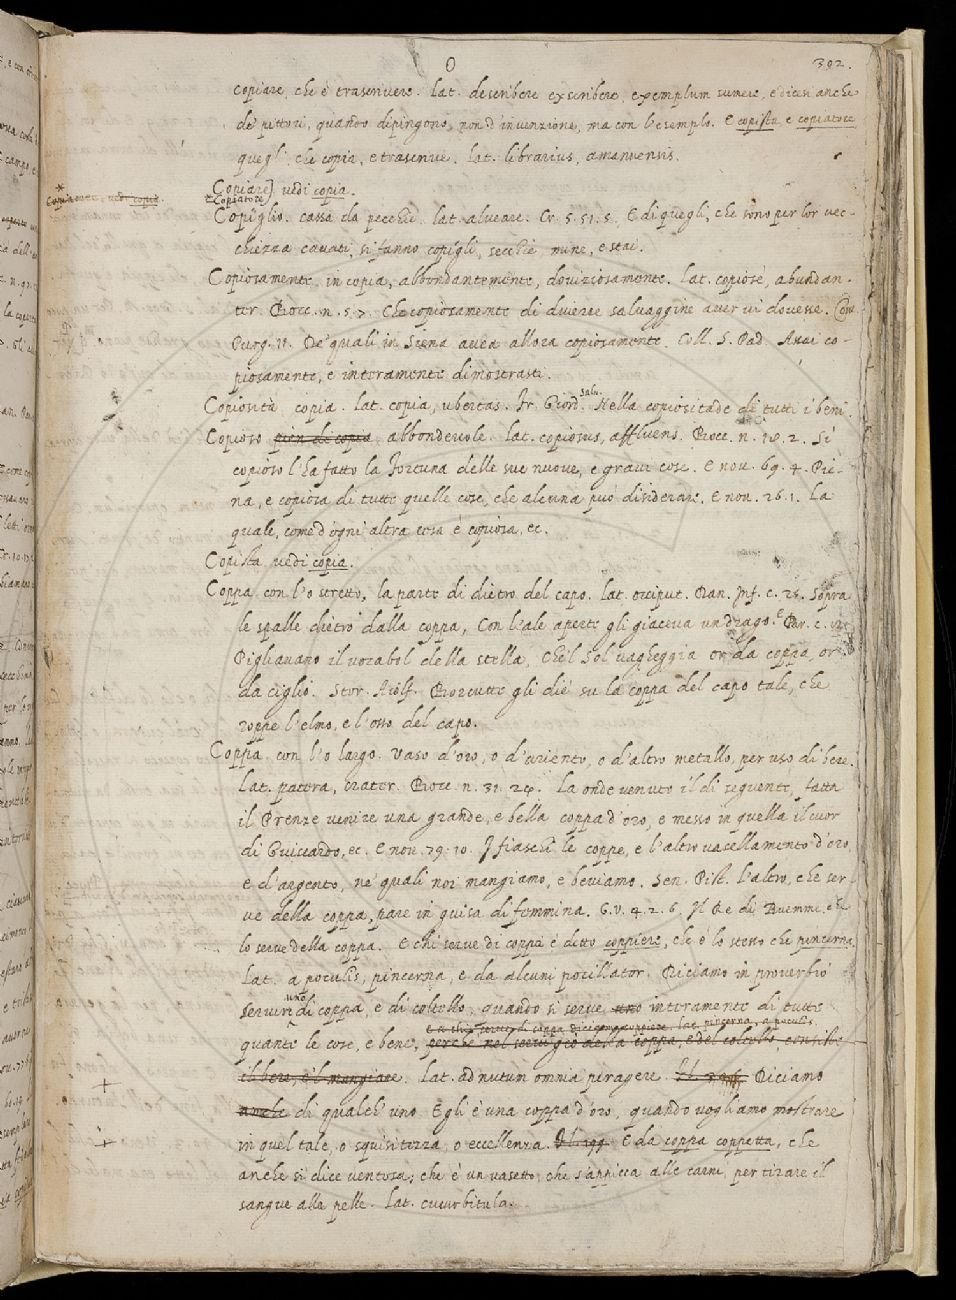 O
392.
copiare, che è trascrivere. Lat. describere exscribere, exemplum sumere, e dicesi anche
de' pittori, quando dipingono, non d'invenzione, ma con l'esemplo. E copista, e copiatore
quegli che copia, e trascrive. Lat. librarius, amanuensis.
Copiare] vedi copia.
* Copiatore vedi copia.
* Copiatore
Copiglio. cassa da pecchie. lat. alveare. Cr. 5. 51. 5. E di quegli, che sono per lor vec-
chiezza cavati, si fanno copigli, secchie, mine, e staj.
Copiosamente, in copia, abbondantemente, doviziosamente. Lat. copiosè, abundan-
ter. Bocc. n. 5. 7. Che copiosamente di diverse salvaggine aver vi dovesse. Com.
Purg. 11. De' quali in Siena avea allora copiosamente. Coll. S. Pad. Assai co-
piosamente, e interamente dimostrasti.
Copiosità, copia. Lat. copia, ubertas. Fr. Giord. Salv. Nella copiositade di tutti i beni
Copioso pien di copia, abbondevole. Lat. copiosus, affluens. Bocc. n. 18. 2. Sì
copioso l'ha fatto la Fortuna delle sue nuove, e gravi cose. E nov. 69. 4. Pie-
na, e copiosa di tutte quelle cose, che alcuna può disiderare. E nov. 26. 1. La
quale, come d'ogni altra cosa è copiosa, ec.
Copista vedi copia.
Coppa con l'o stretto, la parte di dietro del capo. Lat. occiput. Dan. Inf. c. 25. Sopra
le spalle dietro dalla coppa, Con l'ale aperte gli giaceva un drago. E Par. c. 8.
Pigliavano il vocabol della stella, Che'l Sol vagheggia or da coppa, or
da ciglio. Stor. Aiolf. Borcutte gli diè su la coppa del capo tale, che
roppe l'elmo, e l'osso del capo.
Coppa, con l'o largo. Vaso d'oro, o d'ariento, o d'altro metallo, per uso di bere.
Lat. patera, crater. Bocc. n. 31. 24. La onde venuto il dì seguente, fatta
il Prenze venire una grande, e bella coppa d'oro, e messo in quella il cuor
di Guiscardo, ec. E nov. 79. 10. I fiaschi le coppe, e l'altro vasellamento d'oro,
e d'argento, ne' quali noi mangiamo, e beviamo. Sen. Pist. L'altro, che ser-
ve della coppa, pare in guisa di femmina. G. V. 4. 2. 6. Il Re di Buemme che
lo serve della coppa. E chi serve di coppa è detto coppiere, che è lo stesso che pincerna.
Lat. a poculis, pincerna, e da alcuni pocillator. Diciamo in proverbio
Servire uno di coppa, e di coltello, quando si serve uno interamente di tutte
quante le cose, e bene, perche nel servigio della coppa, e del coltello, consiste
il bere, e'l mangiare. Lat. ad nutum omnia peragere. Diciamo
anche di qualch'uno Egli è una coppa d'oro, quando vogliamo mostrare
in quel tale, o squisitezza, o eccellenza. E da coppa coppetta, che
anche si dice ventosa; che è un vasetto, che s'appicca alle carni, per tirare il
sangue alla pelle. Lat. cucurbitula.